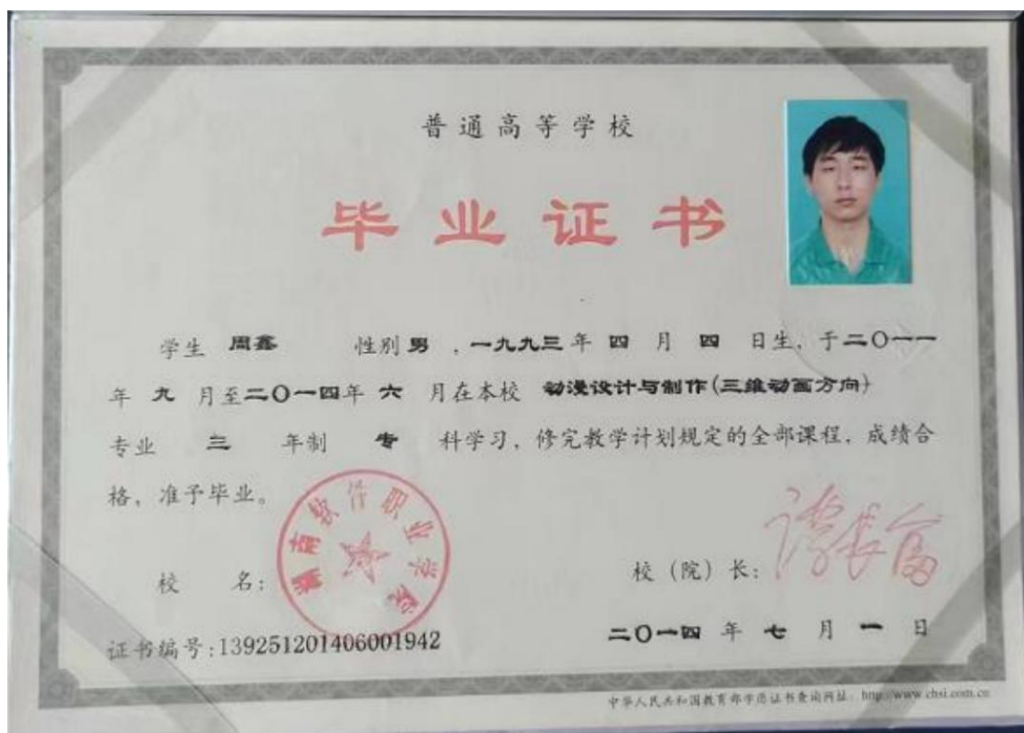 普通高等学校
毕业证书
学生 周鑫 性别 男 ，一九九三年 四 月 四 日生，于二〇一一
年 九 月至二〇一四年 六 月在本校 动漫设计与制作(三维动画方向)
专业 三 年制 专 科学习，修完教学计划规定的全部课程，成绩合
格，准予毕业。
湖南软件职业学院
校 名：
校（院）长：谭长富
证书编号:139251201406001942
二〇一四 年 七 月 一 日
中华人民共和国教育部学历证书查询网址：http://www.chsi.com.cn